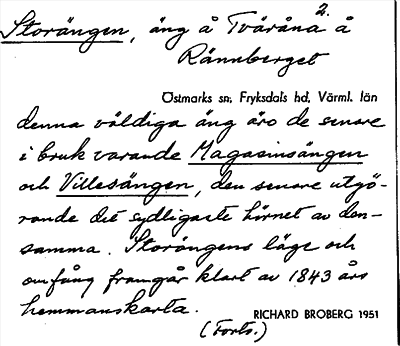 Storängen, äng å Tväråna 2. å
Rännberget
Östmarks sn, Fryksdals hd, Värml. län
denna väldiga äng äro de senare
i bruk varande Magasinsängen
och Villesängen, den senare utgö-
rande det sydligaste hörnet av den-
samma. Storängens läge och
omfång framgår klart av 1843 års
hemmanskarta.
RICHARD BROBERG 1951
(Forts.)